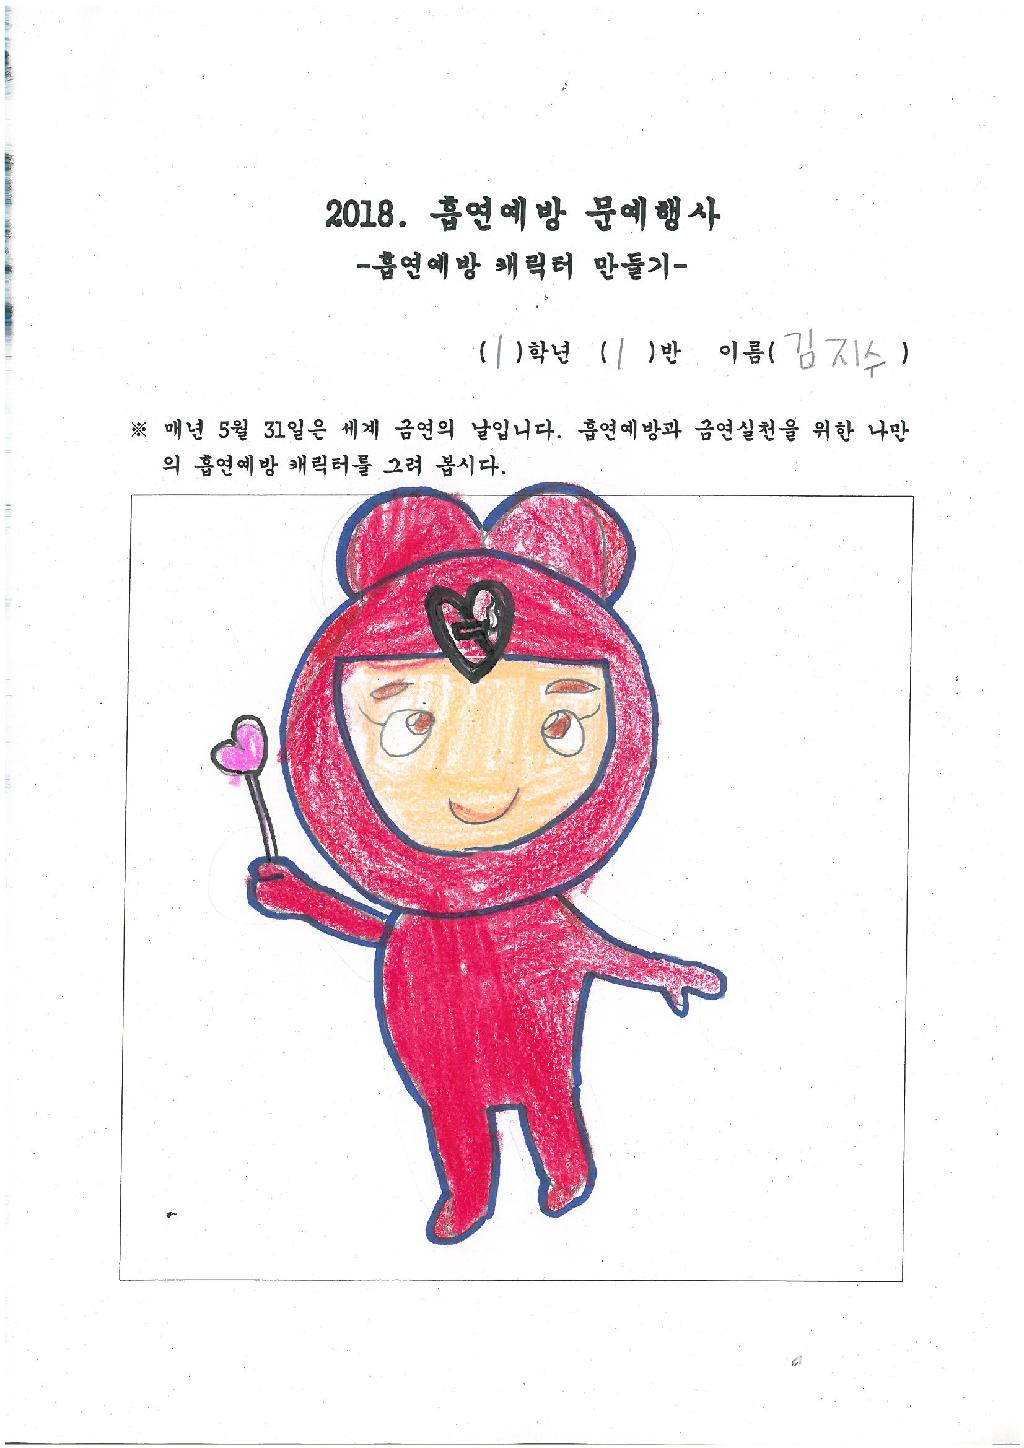 2018. 흡연예방 문예행사
-흡연예방 캐릭터 만들기-
(1)학년 (1)반 이름(김지수)
※ 매년 5월 31일은 세계 금연의 날입니다. 흡연예방과 금연실천을 위한 나만
의 흡연예방 캐릭터를 그려 봅시다.